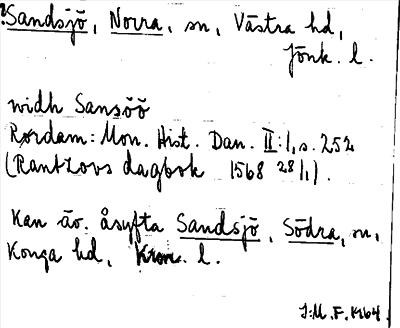 ?Sandsjö, Norra, sn, Västra hd,
Jönk. l.
widh Sansöö
Rørdam: Mon. Hist. Dan. II:1, s. 252
(Rantzovs dagbok 1568 28/1).
Kan äv. åsyfta Sandsjö, Södra, sn,
Konga hd, Kron. l.
J:M. F. 1964.